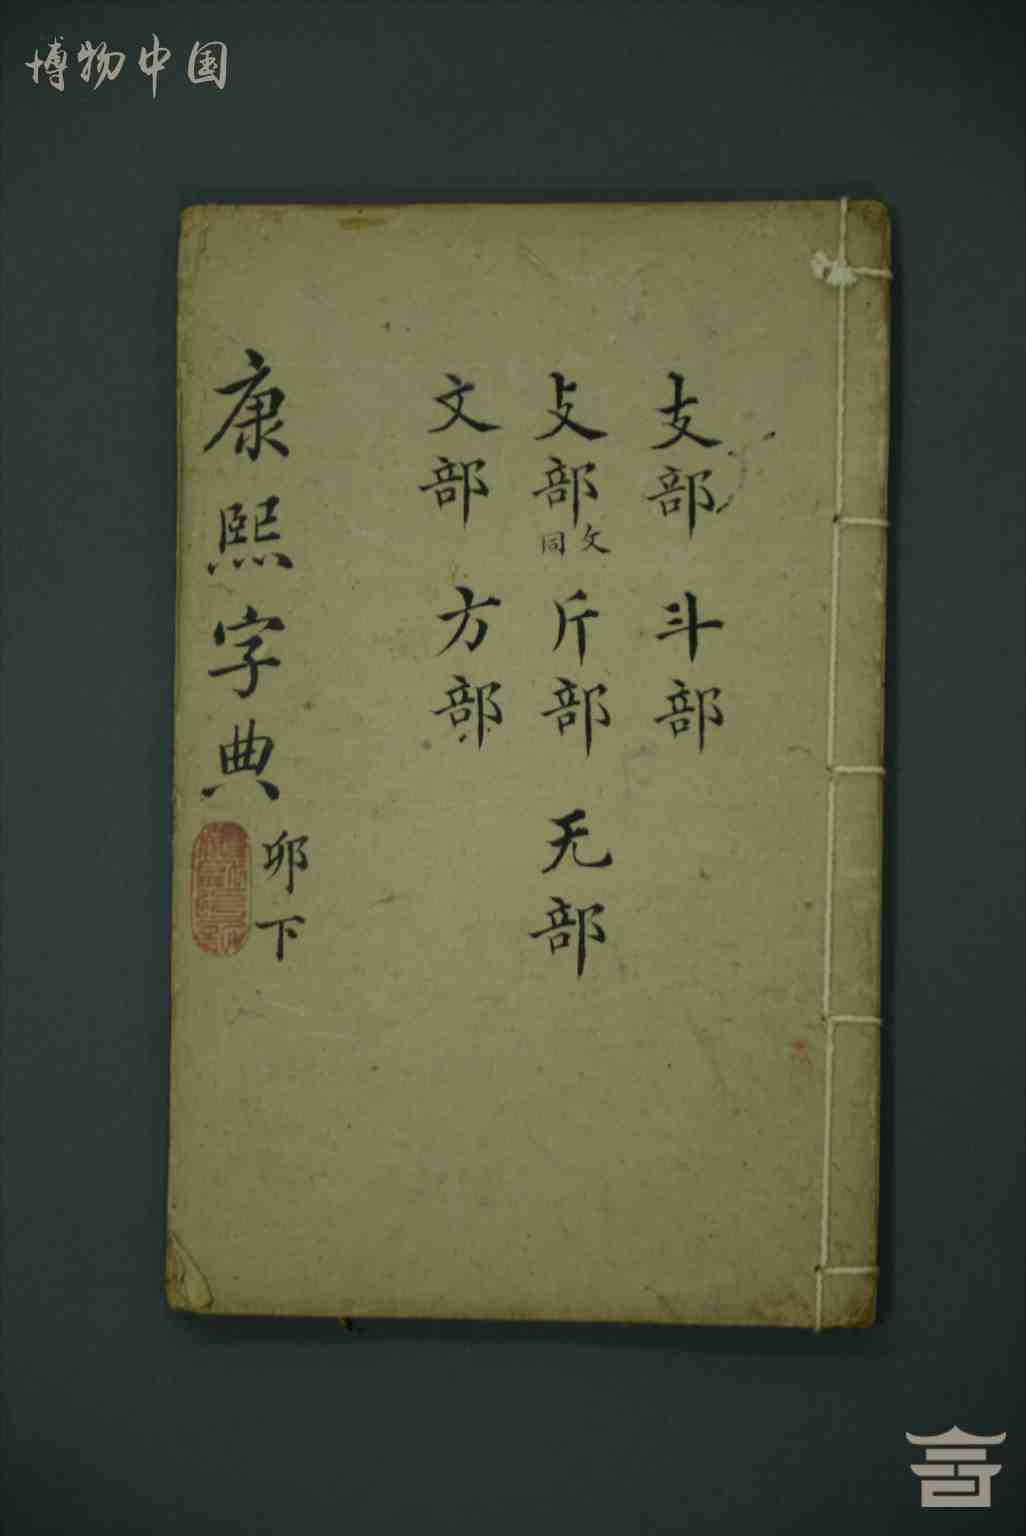 博物中国
支部 斗部
攴部攵同 斤部 无部
文部 方部
康熙字典卯下